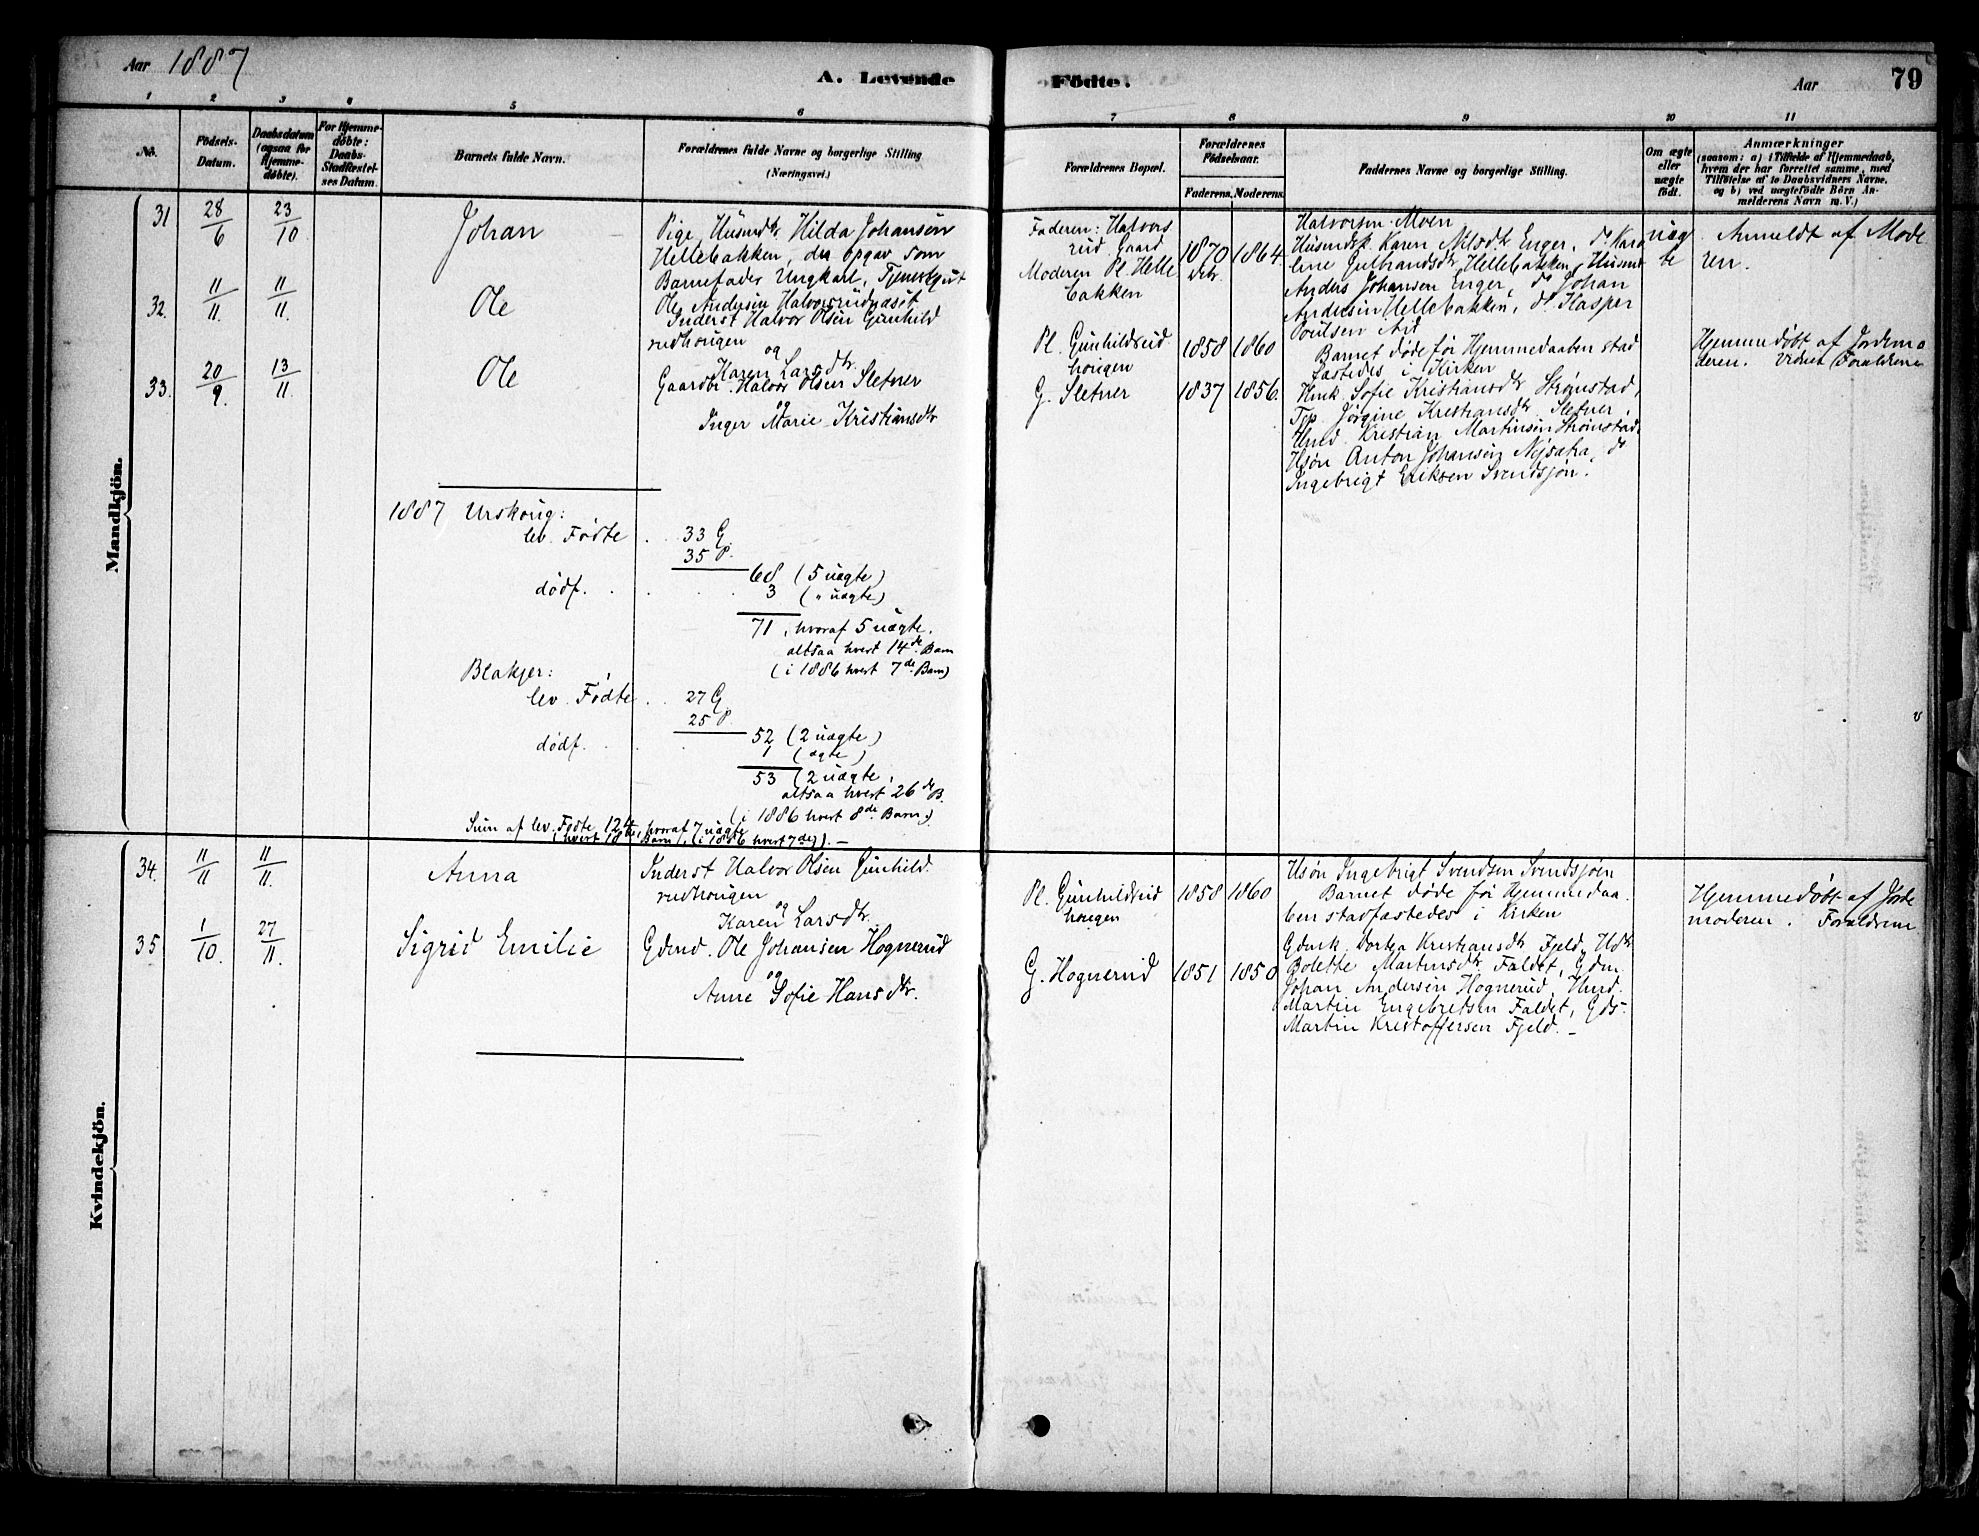 Aar 1887
A. Levende
Födte.
Aar
79
1 2 3 4 5 6
7 8 9 10 11
No.
Födsels-
Datum.
Daabsdatum
(ogsaa for
Hjemme-
døbte).
For Hjemme-
døbte:
Daabs-
Stadfæstel-
ses Datum.
Barnets fulde Navn.
Forældrenes fulde Navne og borgerlige Stilling
(Næringsvei.)
Forældrenes Bopæl.
Forældrenes
Födselsaar.
Faderens. Moderens.
Faddernes Navne og borgerlige Stilling.
Om ægte
eller
uægte
født.
Anmærkninger
(saasom: a) i Tilfælde af Hjemmedaab,
hvem der har forrettet samme, med
Tilføielse af to Daabsvidners Navne,
og b) ved uægtefödte Börn An-
melderens Navn m. V.)
Mandkjön.
31
28/6
23/10
Johan
Pige Husmdtr. Hilda Johansen
Hellebakken, der opgav som
Barnefader Ungkarl, Tjenestgut
Ole Andersen Halvorsrudnæset
Faderen: Halvors
rud. Gaard
Moderen Pl. Helle
bakken
1870
1864
Halvorsen Moen
Husmdsk. Karen Nilsdtr Enger, do Karo
line Gulbrandsdtr Hellebakken, Husmd
Anders Johansen Enger, do Johan
Andersen Hellebakken, do Kasper
Poulsen
uæg
te
Anmeldt af Mode
ren.
32.
11/11.
11/11.
Ole
Inderst Halvor Olsen Gunhild
rudhougen
og
Karen Larsdtr.
Pl. Gunhildsrud
hougen
1858
1860
Barnet døde før Hjemmedaaben stad
fæstedes i Kirken
Hjemmedøbt af Jordemo
deren. Vidner Forældrene
33.
20/9.
13/11.
Ole
Gaardbr. Halvor Olsen Sletner
og
Inger Marie Kristiansdtr
G. Sletner
1837
1856.
Hmk. Sofie Kristiansdtr Strømstad,
Tep Jørgine Kristiansdtr Sletner,
Hmd. Kristian Martinsen Strømstad,
Hsøn Anton Johansen Nysætra, do
Ingebrigt Eriksen Svendsjøn.
1887 Urskoug:
lev. Fødte . . 33 G.
35 P.
68 (5 uægte)
dødf. . . . . 3 („ uægte)
71, hvoraf 5 uægte.
altsaa hvert 14de Barn
(i 1886 hvert 7de Barn)
Blakjer:
lev. Fødte . . 27 G
25 P.
52 (2 uægte)
dødf. . . . 1 (ægte)
53 (2 uægte,
altsaa hvert 26de B.
(i 1886 hvert 8de Barn)
Sum af lev. Fødte 124, hvoraf 7 uægte
(hvert 18de Barn), (i 1886 hvert 7de). —
Kvindekjön.
34.
11/11
11/11.
Anna
Inderst Halvor Olsen Gunhild.
rudhougen
og
Karen Larsdtr.
Pl. Gunhildsrud
hougen
1858
1860
Hsøn Ingebrigt Svendsen Svendsjøen
Barnet døde før Hjemmedaa.
ben stadfæstedes i Kirken
Hjemmedøbt af Jorde
moderen. Forældrene
35
1/10.
27/11.
Sigrid Emilie
Gdmd. Ole Johansen Hognerud
og
Anne Sofie Hansdtr.
G. Hognerud
1851
1850
Gdmk. Dortea Kristiansdtr Fjeld, Hdtr
Bolette Martinsdtr. Faldet, Gdm.
Johan Andersen Hognerud, Hmd.
Martin Engebretsen Faldet, Gds-
Martin Kristoffersen Fjeld. —